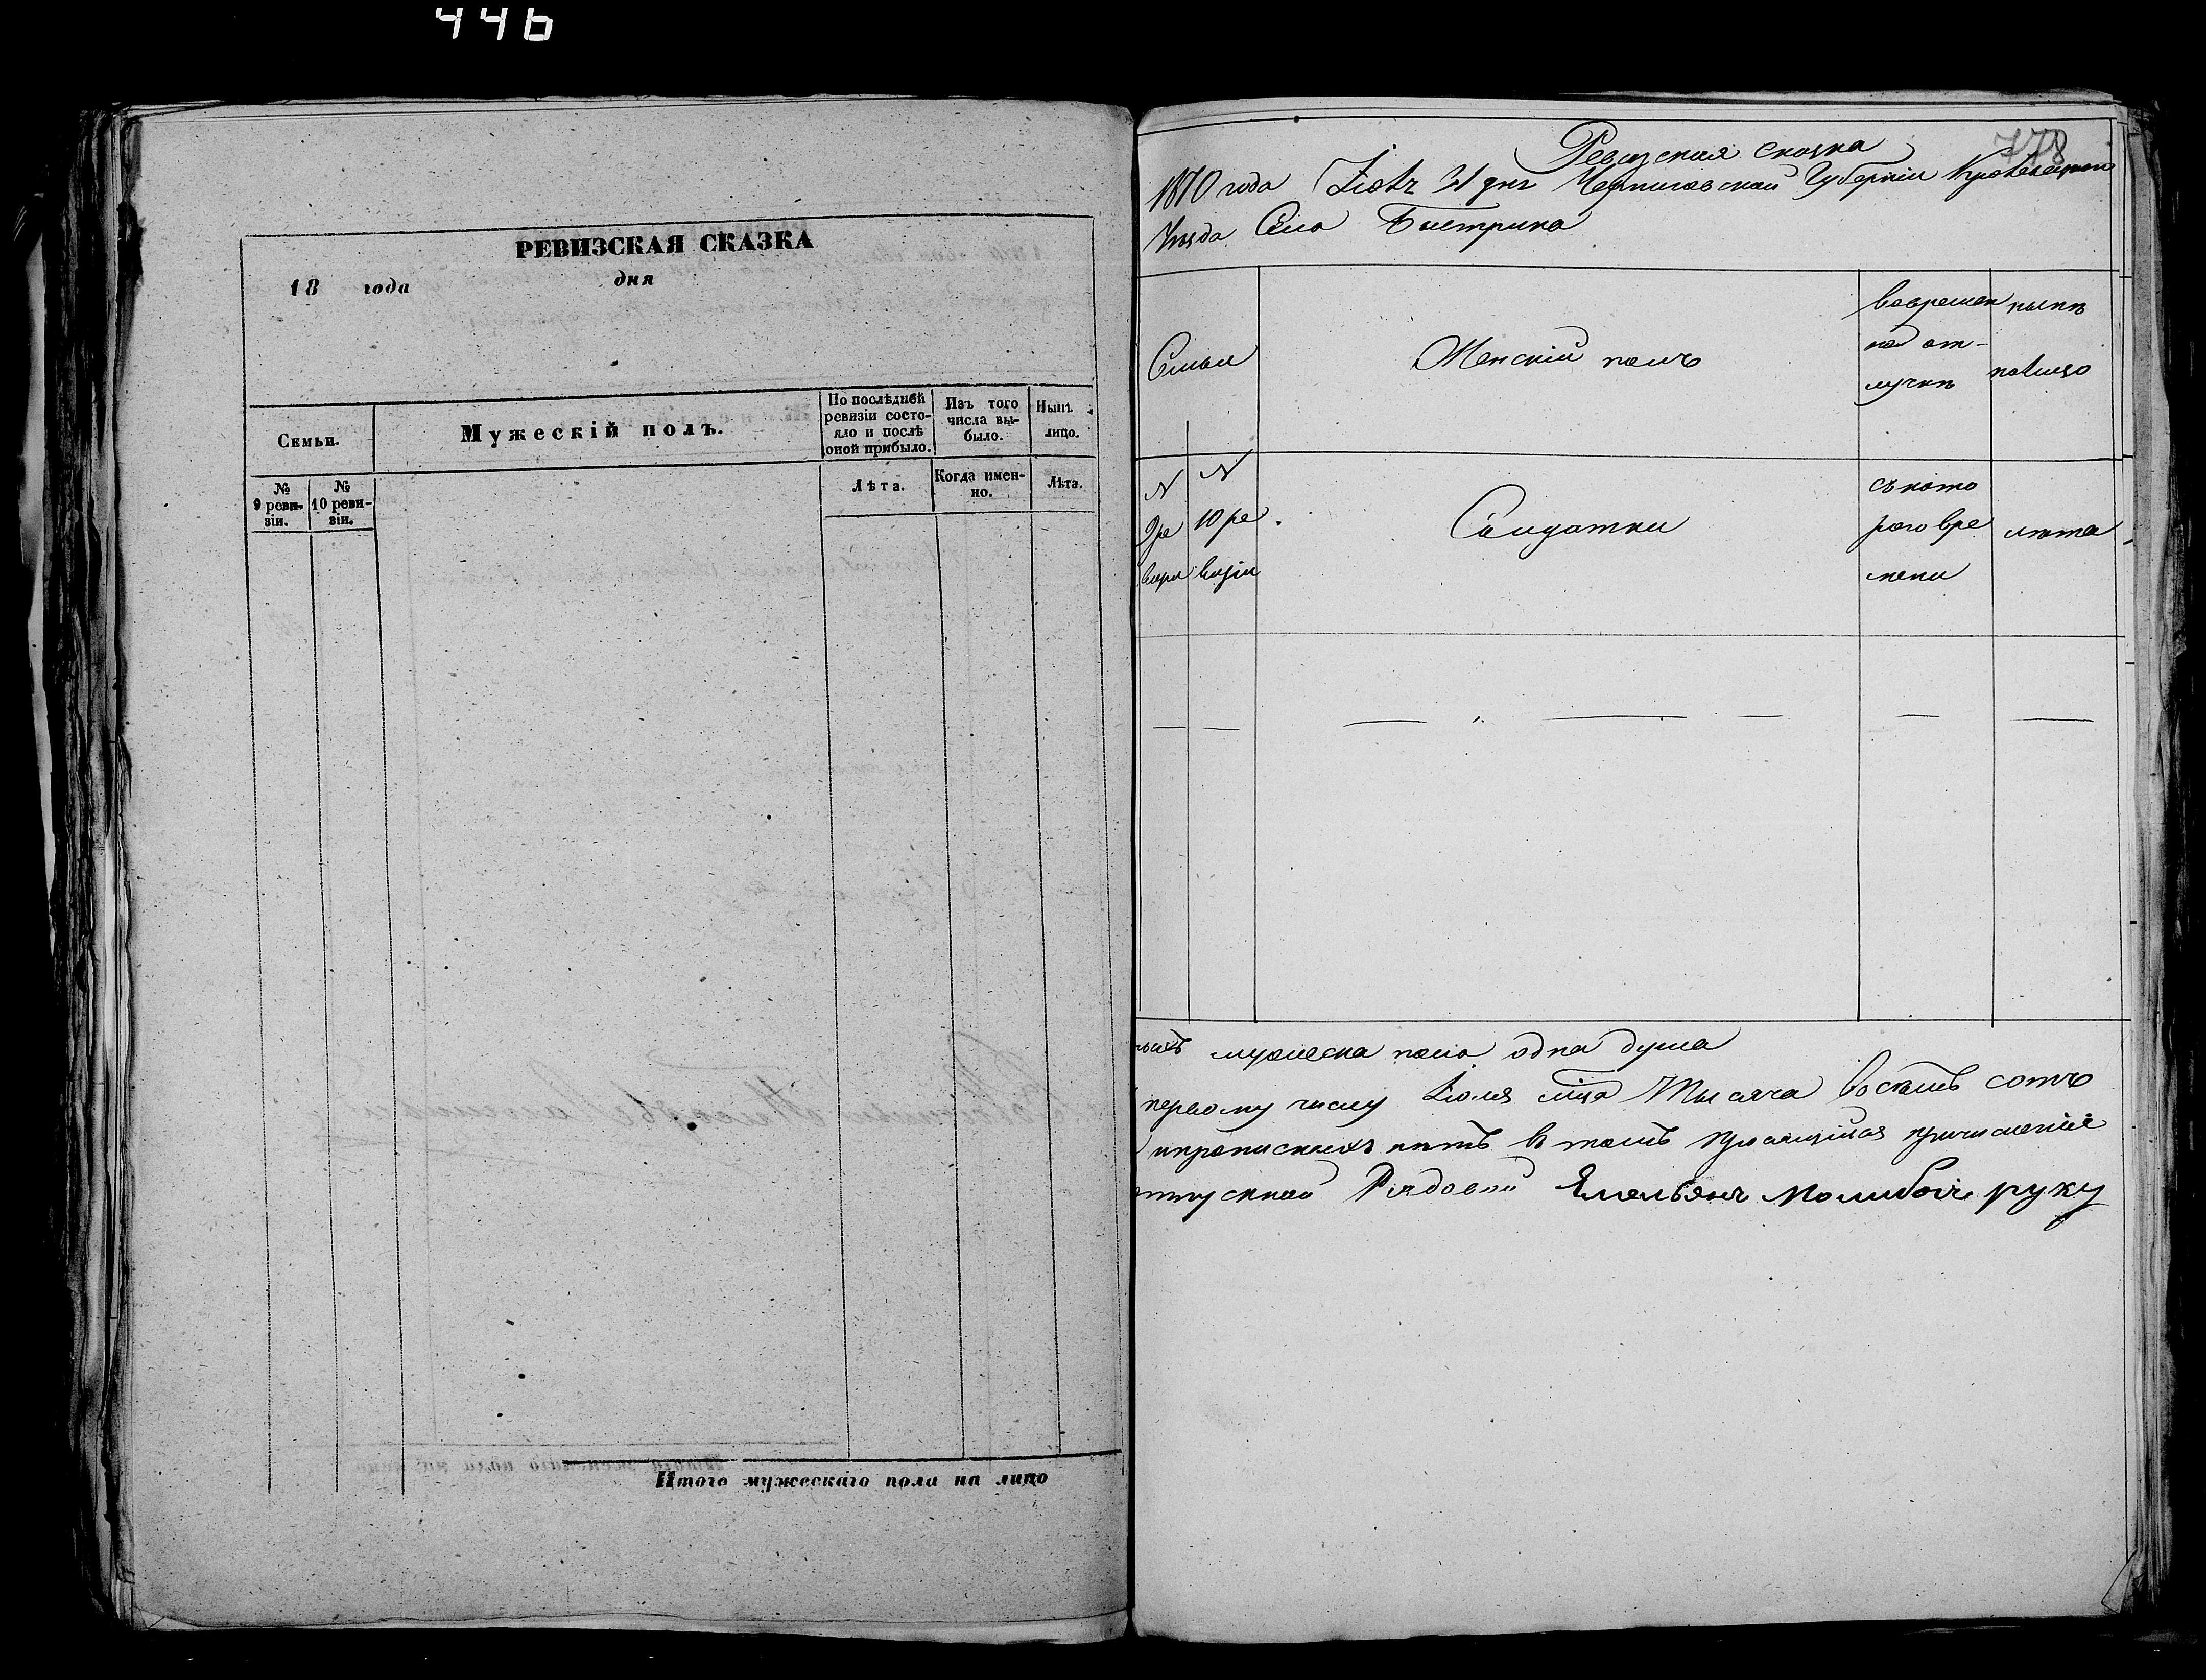 446
РЕВИЗСКАЯ СКАЗКА
18 года дня
Семьи.
Мужескій полъ.
По послѣдней
ревизіи состо-
яло и послѣ
оной прибыло.
Изъ того
числа вы-
было.
Нынѣ
лицо.
№
9 реви-
зіи.
№
10 реви-
зіи.
Лѣта.
Когда имен-
но.
Лѣта.
Итого мужескаго пола на лицо
778
Ревизская сказка
1870 года дня Черниговской Губерніи Кролевецкого
Уезда Село Быстрика
Семьи
Женскій полъ
вовремен
ной от-
лучкѣ
нынѣ
налицо
N
9 ре
визи
N
10 ре
визіи
Салдатки
съ кото
рого вре
мени
лѣта
мужеска пола одна душа
первому числу Іюля мца Тысяча восемь сотъ
ипрописныхъ нѣтъ в томъ
Рядовой Емельянъ руку